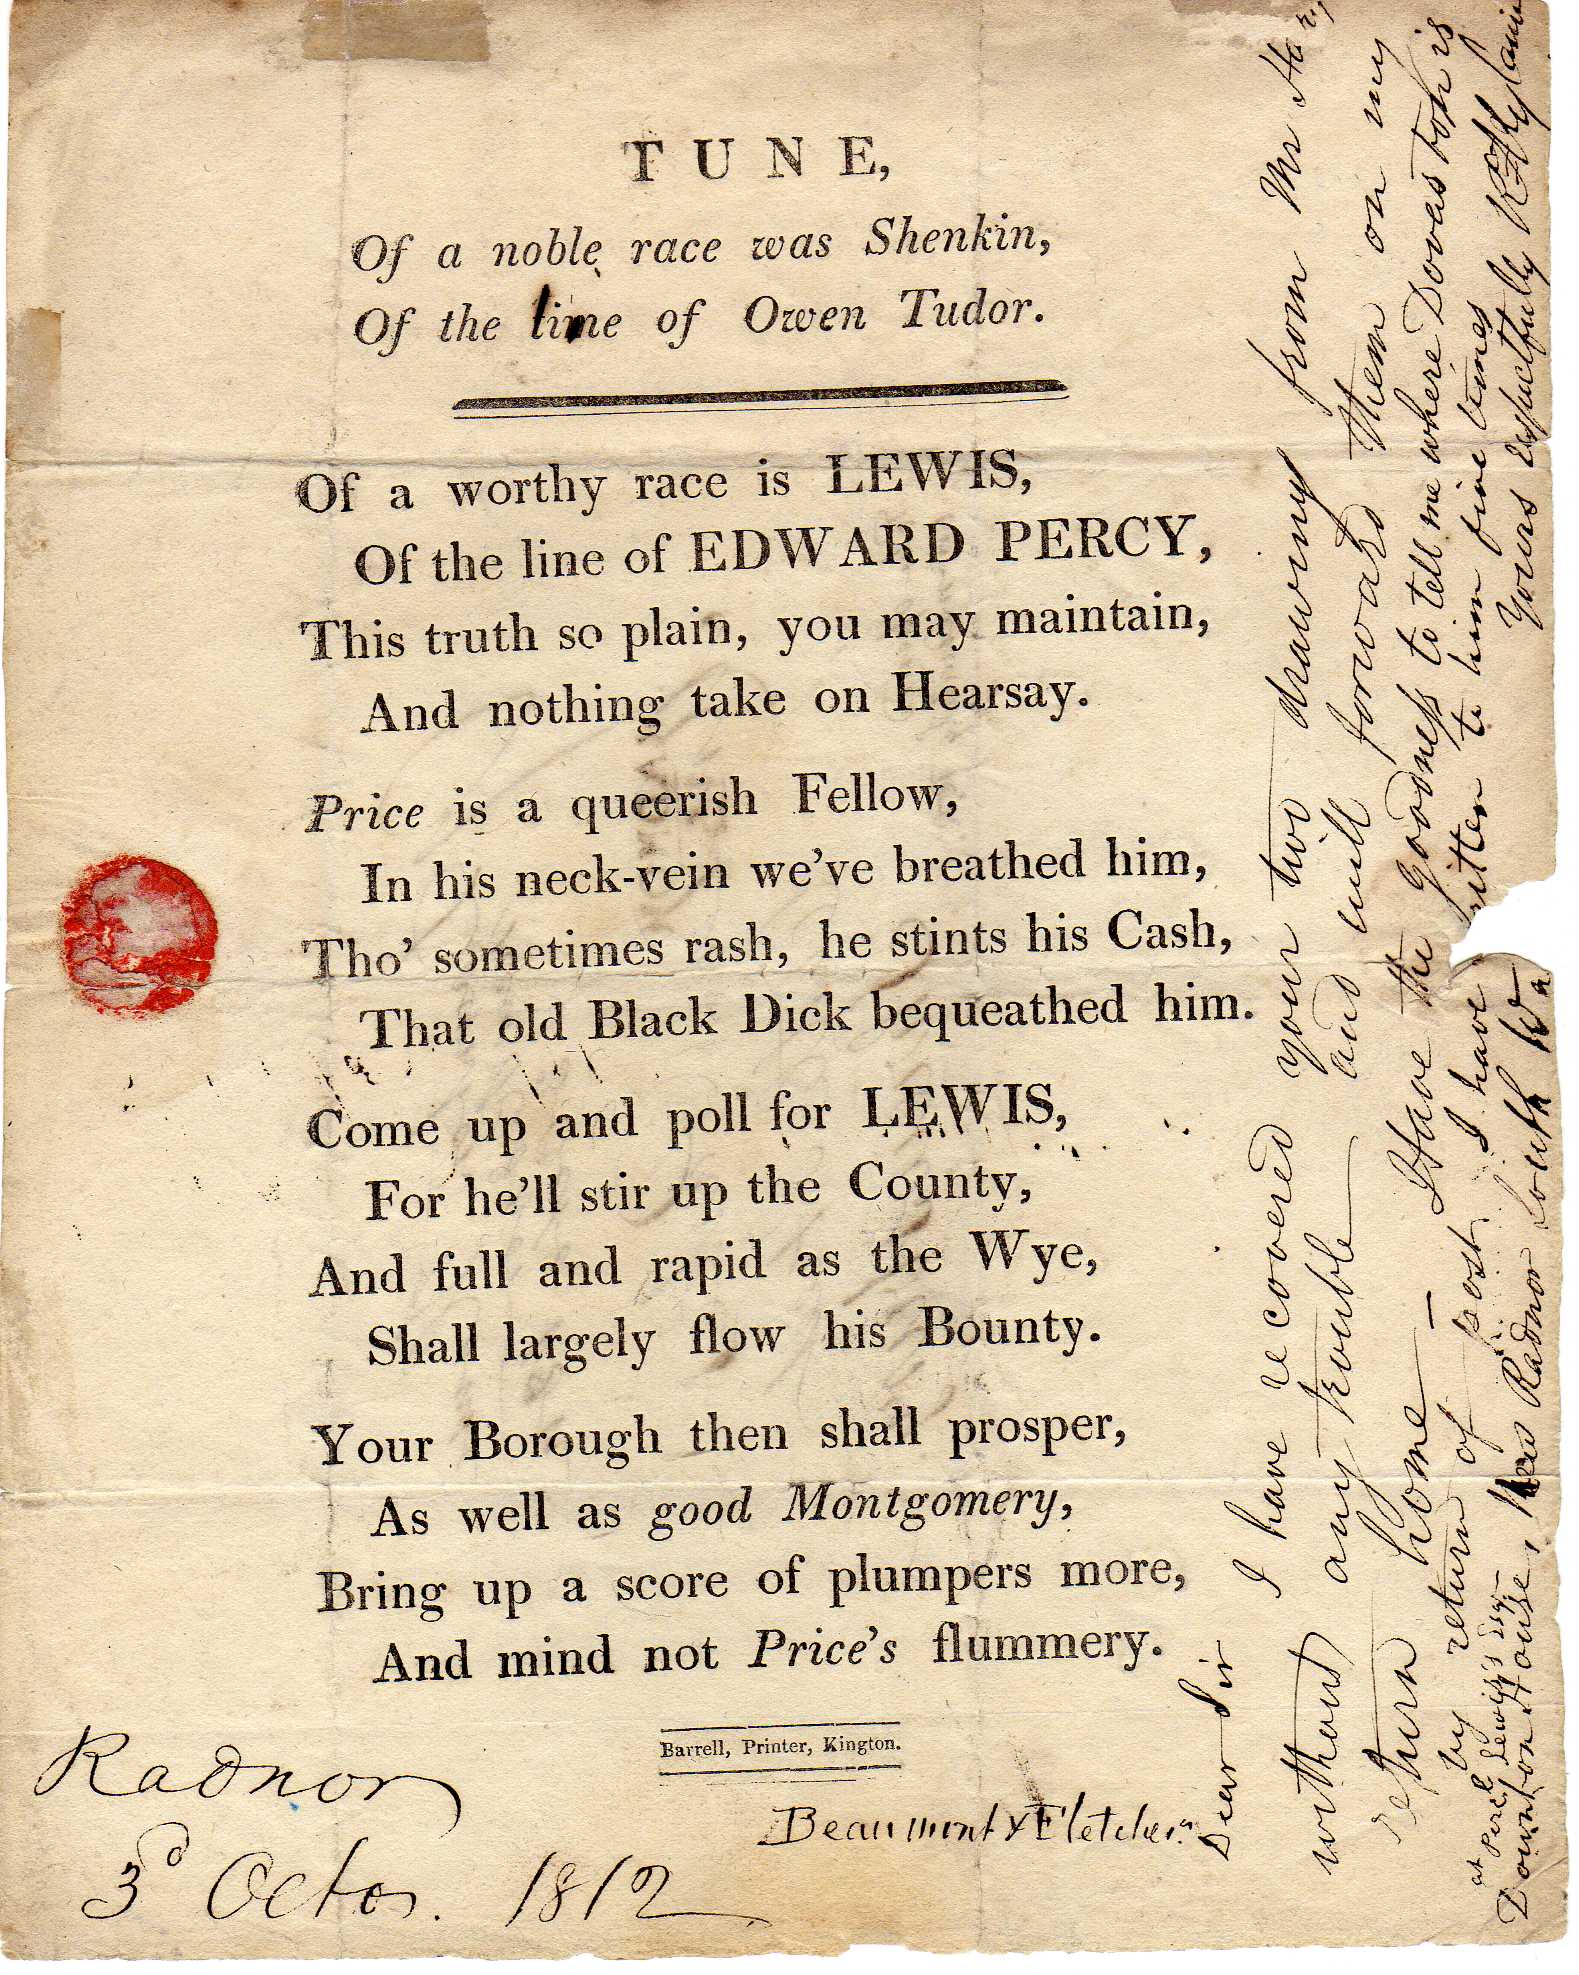 TUNE,
Of a noble race was Shenkin,
Of the line of Owen Tudor.
Of a worthy race is LEWIS,
Of the line of EDWARD PERCY,
This truth so plain, you may maintain,
And nothing take on Hearsay.
Price is a queerish Fellow,
In his neck-vein we've breathed him,
Tho' sometimes rash, he stints his Cash,
That old Black Dick bequeathed him.
Come up and poll for LEWIS,
For he'll stir up the County,
And full and rapid as the Wye,
Shall largely flow his Bounty.
Your Borough then shall prosper,
As well as good Montgomery,
Bring up a score of plumpers more,
And mind not Price's flummery.
Barrell, Printer, Kington.
Beaumont & Fletcher
Radnor
3d Octor. 1812
Dear Sir
I have recovered your two drawings from Mr
without any trouble and will forward them on my
return home — Have the goodness to tell me where is
by return of post. I have written to him five times
Yours respectfully
at Perc Lewis's Esqr
Downton House, New Radnor South Wa